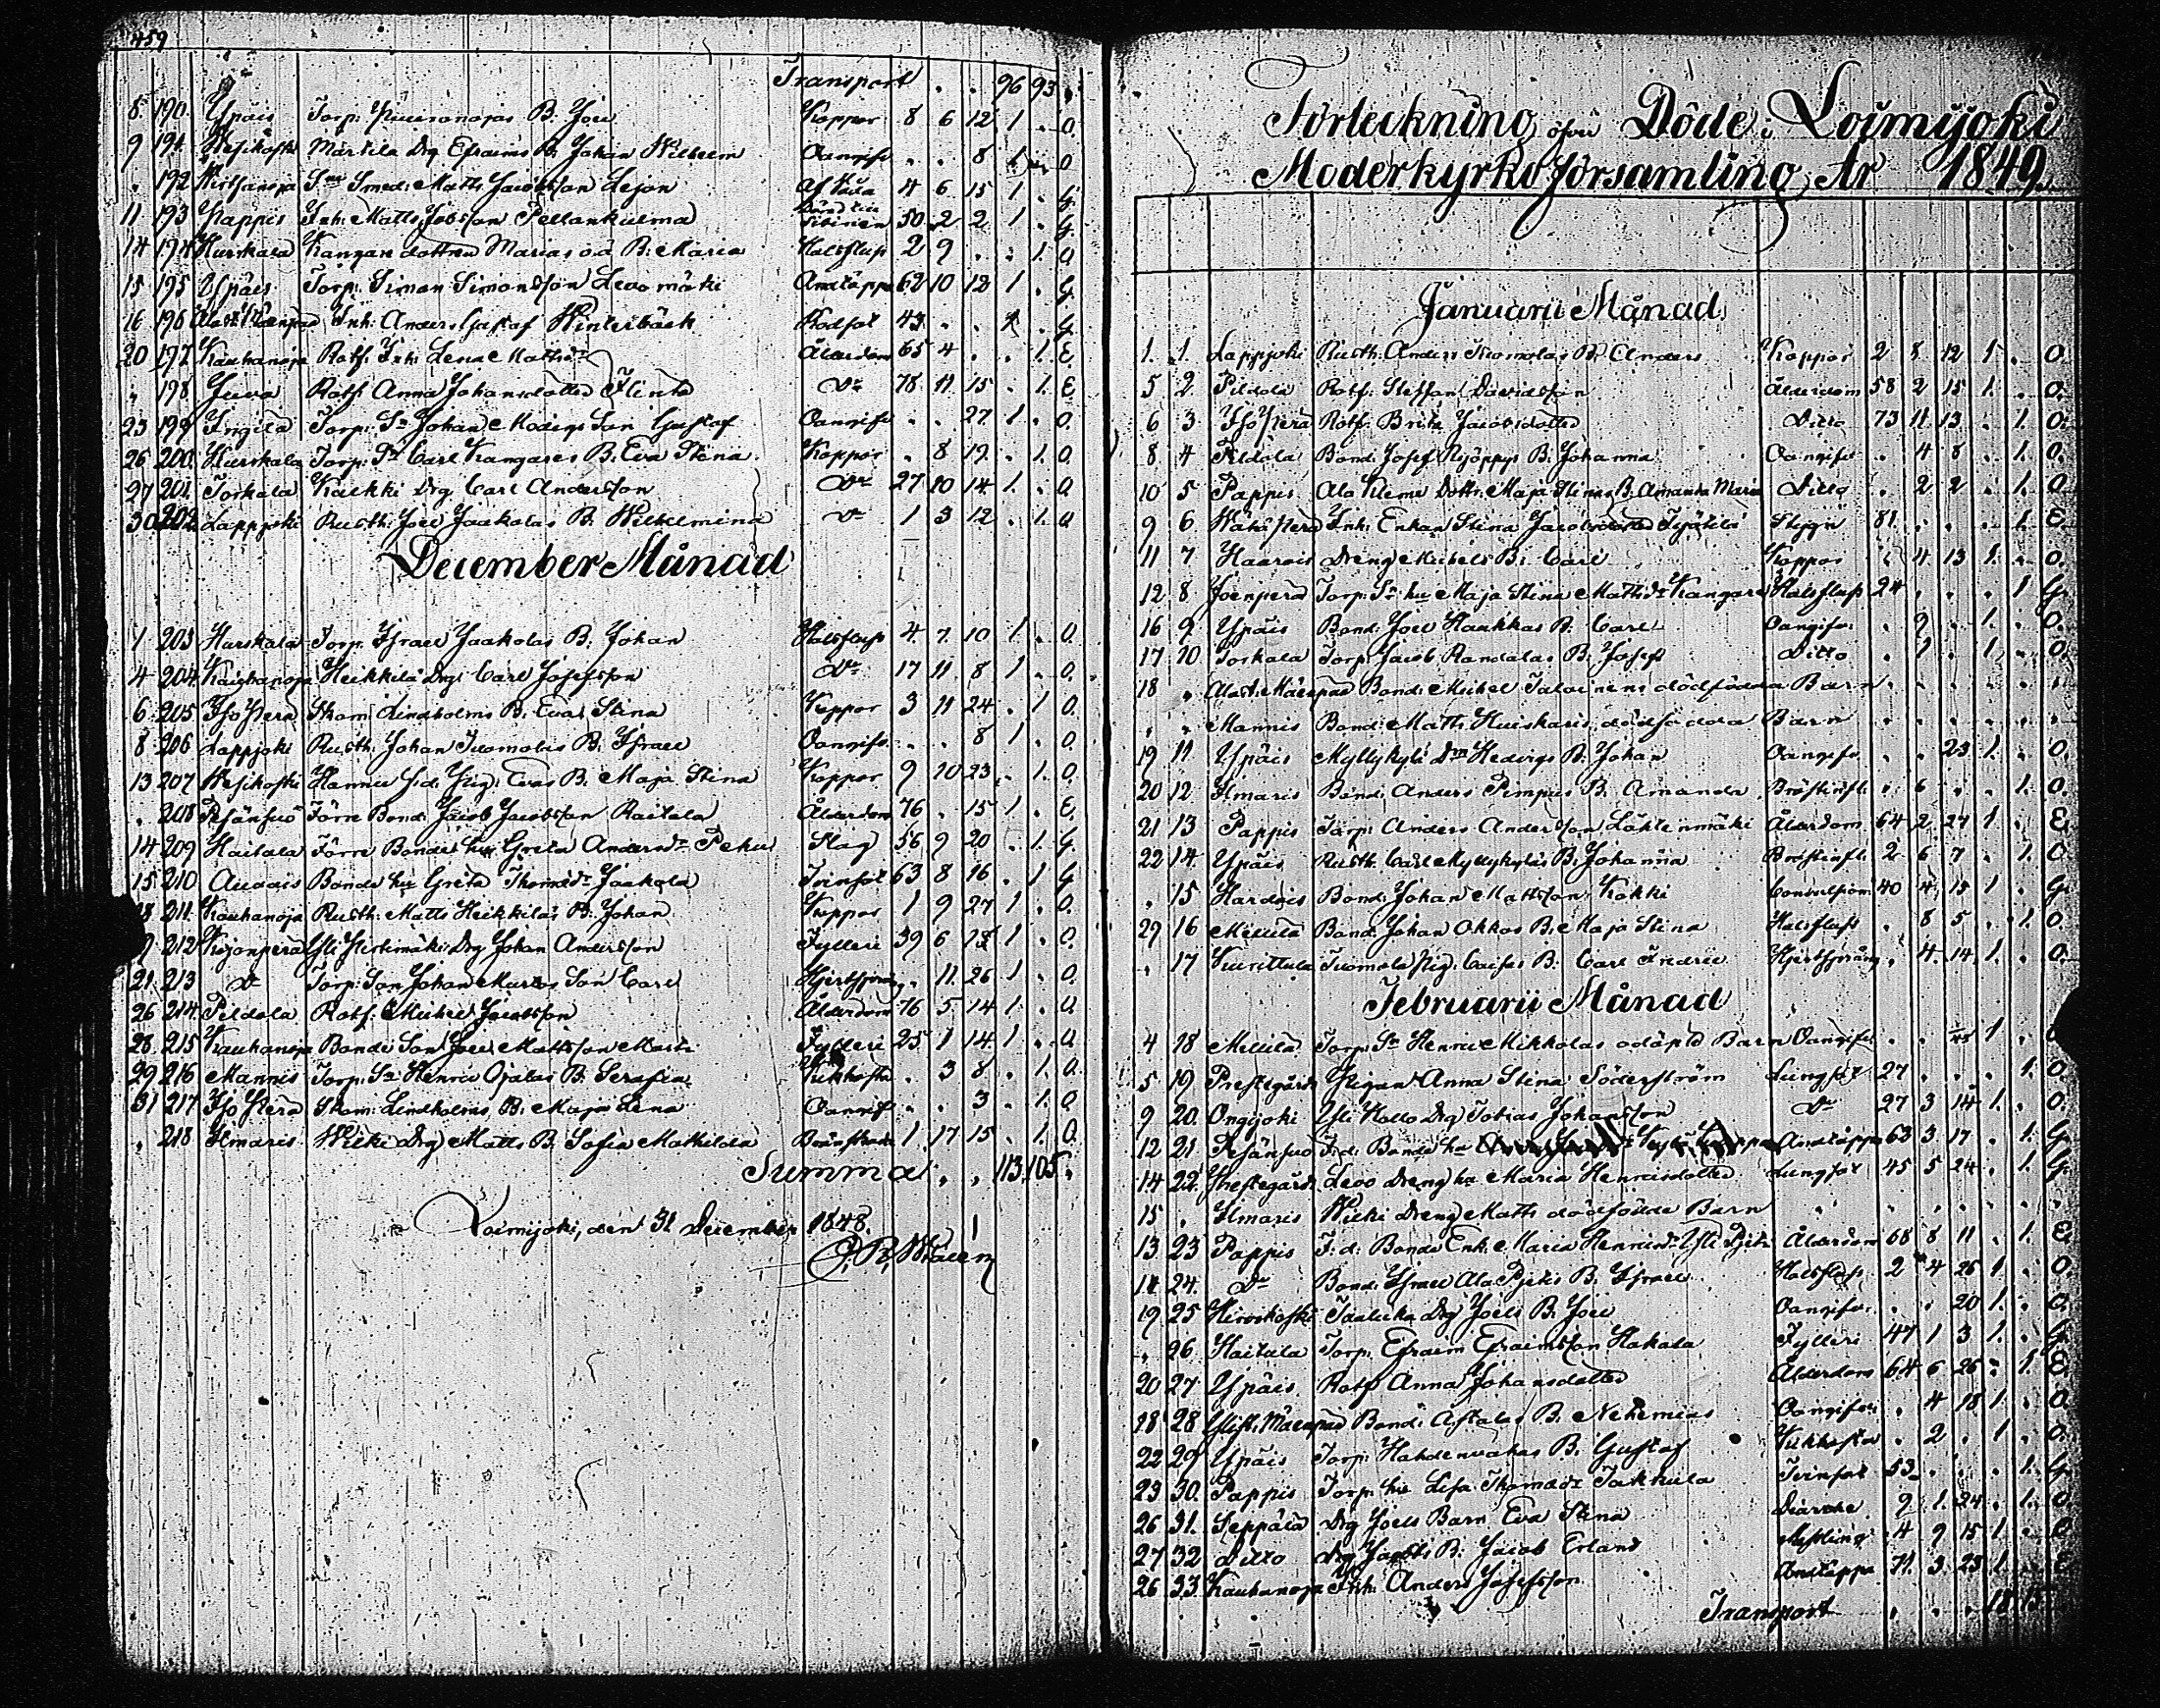 459
Transport . . 96 93 .
8. 190. Ypäis Torp. B. Joel Koppor 8 6 12 1 . O.
9 191. Wesikoski Märtila Drg Efraims B. Johan Wilhelm Oangifv . . 8 1 . O
. 192 Wirtsanoja Smed. Matts Jacobsson Lejon Af Våda 4 6 15 1 . G.
11 193 Pappis Inh. Matts Jobsson Pellankulma 50 2 2 1 . G.
14 194 Hurskala Kangare dottren Marias oä B. Maria Halsflus 2 9 . . 1. O
15 195 Ypäis Torp. Simon Simonsson Levomäki Andtäppa 62 10 12 1 . G.
16 196 Inh. Anders Gustaf Winterbäck Rödsot 43 . . 1. . G.
20 197 Kauhanoja Rotf. Enk. Lena Mattsdr Ålderdom 65 4 . . 1. E.
„ 198 Juva Rotf. Anna Johansdotter Flinta Do 78 11 15 . 1. E
23 199 Torp. Sn Johan Modigs Son Gustaf Oangifv . . 27 1 . O.
26 200. Hurskala Torp. Sn Carl Kangares B. Eva Stina. Koppor . 8 19 . 1. O.
27 201. Torkala Drg Carl Andersson Do 27 10 14 1. . O
30 202 Lappjoki Rusth. Joel Jaakolas B. Wilhelmina Do 1 3 12 . 1. O
December Månad
1 203 Hurskala Torp. Israel Jaakolas B. Johan Halsfluss 4 7 10 1 . O.
4 204. Kauhanoja Heikkilä Drg. Carl Josefsson Do 17 11 8 1 . O.
6. 205 Isoperä Skom. Lindholms B. Eva Stina Koppor 3 11 24 . 1 O.
8 206 Lappjoki Rusth. Johan Tuomolas B. Israel Oangifv. . . 8 1 . O.
13 207 Wesikoski Hannu Pig. Evas B. Maja Stina Koppor 9 10 23 . 1. O.
. 208 Förre Bond. Jacob Jacobsson Raitala Ålderdom 76 . 15 1 . E.
14 209 Haitala Förre Bonde hu Greta Andersdr Peku Slag 56 9 20 . 1. G.
15 210 Auvais Bonde hu Greta Thomasdr Jaakola Tvinsot 63 8 16 . 1 G
18 211. Kauhanoja Rusth. Matts Heikkiläs B. Johan Koppor 1 9 27 1 . O.
212 Kojonperä Drg Johan Andersson Fylleri 39 6 13 1 . O.
21. 213 Do Torp. Son Johan Martos Son Carl Hjertsprång . 11. 26 1 . O.
26 214. Peldola Rotf. Michel Jacobsson Ålderdom 76 5 14 1. . O.
28. 215 Kauhanoja Bonde Son Joel Mattsson Fylleri 25 1 14. 1 . O.
29 216 Mannis Torp. Sn Henric Ojalas B. Serafia Kikhosta . 3 8 . 1. O.
31 217 Isoperä Skom. Lindholms B. Maja Lena Oangif . . 3 . 1. O
„ 218 Ilmaris Wieki Drg Matts B. Sofia Mathilda 1 17 15 . 1. O.
Summa . . 113. 105.
Loimijoki, den 31 December 1848.
Förteckning öfver Döde i Loimijoki
Moderkyrko församling År 1849.
Januarii Månad
1. 1. Lappjoki Rusth. Anders Tuomolas B. Anders Koppor 2 8 12 1 . O.
5 2. Peldola Rotf. Steffan Davidsson Ålderdom 58 2 15 1. . O.
6 3 Isoperä Rotf. Brita Jacobsdotter Ditto 73 11 13 . 1. O.
8 4 Peldola Bond. Josef Ryöppys B. Johanna Oangifv . 4 8 . 1. O.
10 5 Pappis Ala Kleme Dottr. Maja Stinas B. Amanda Maria Ditto . 2 2 . 1. O
9 6 Wähäperä Inh. Enkan Stina Jacobsdotter Stygn 81 . . . 1. E.
11 7 Haarois Dreng Michels B. Carl Koppor . 4 13 1. . O.
12 8. Joenperä Torp. Sn hu Maja Stina Mattsdr Kangare Halsfluss 24 . . . 1 G.
16 9 Ypäis Bond. Joel Haukkas B. Carl Oangifv. . 9 . 1. . O.
17 10 Torkala Torp. Jacob Randalas B. Josef Ditto . 1 . 1. . O.
18 „ Bond. Michel Taloinens dödfödda Barn . . . . . .
„ „ Mannis Bond. Matts Huiskaris dödfödda Barn . . . . . .
19 11 Ypäis Myllykylä Drn Hedvigs B. Johan Oangifv . . 23 1. . O.
20 12 Ilmaris Bond. Anders Pimpus B. Amanda Bröstinfl. . 6 . . 1. O.
21 13 Pappis Torp. Anders Andersson Lähtenmäki Ålderdom. 64 2 27 1 . E.
22 14. Ypäis Rusth. Carl Myllykyläs B. Johanna Bröstinfl. 2 6 7 . 1. O
„ 15 Bond. Johan Mattsson Kokki Convulsion 40 4 15 1 . G.
29 16 Mellilä Bond. Johan Okkos B. Maja Stina Halsfluss . 8 5 . 1. O
„ 17 Wirittula Tuomola Pig. Caisas B. Carl Fredric Hjertsprång . 4. 14 1. . O.
Februarii Månad
4 18 Mellilä Torp. Sn Henric Mikkolas odöpta Barn Oangifv. . . 1 .
5 19. Prestgård Pigan Anna Stina Söderström Lungsot 27 . . . 1. O
9 20. Onkijoki Yli Kallo Drg Tobias Johansson Do 27 3 14 1. . O.
12 21 F. d. Bonde hu Andtäppa 63 3 17 . 1. G.
14 22. Prestgård Levo Dreng hu Maria Henricsdotter Lungsot 45 5 24 . 1. G.
15 „ Ilmaris Wieki Dreng Matts dödfödde Barn . . . . . . .
13 23 Pappis F. d. Bonde Enk. Maria Henricsdr Yli Pjeti Ålderdom 68 8 11 . 1. E
14 24. Do Bond. Israel Ala Pjetis B. Israel Halsfluss 2 4 26 1 . O.
19 25 Hirvikoski Drg Joels B. Joel Oangifv. . . 20 1. . O.
„ 26 Haitula Torp. Efraim Efraimsson Hakala Fylleri 47 1 3 1. . G.
20 27 Ypäis Rotf Anna Johansdotter Ålderdom 64 6 26 . 1. E
18 28 Bond. Astalas B. Nehemias Oangifv. . 4 18 1 . O.
22 29 Ypäis Torp. Hahdenvahas B. Gustaf Kikhosta . 2 . 1 . O.
23 30. Pappis Torp. hu Lisa Thomasdr Takkula Tvinsot 53 . . . 1. G.
26 31. Seppälä Drg Joels Barn Eva Stina Diarrhe 9 1. 24 . 1. O.
27 32 Ditto Drg Jacobs B. Jacob Erland Messling 4 9 15 1. . O
26 33 Kauhanoja Inh. Anders Josefsson Andtäppa 71 3 23 1. . E
Transport . . . 18 15